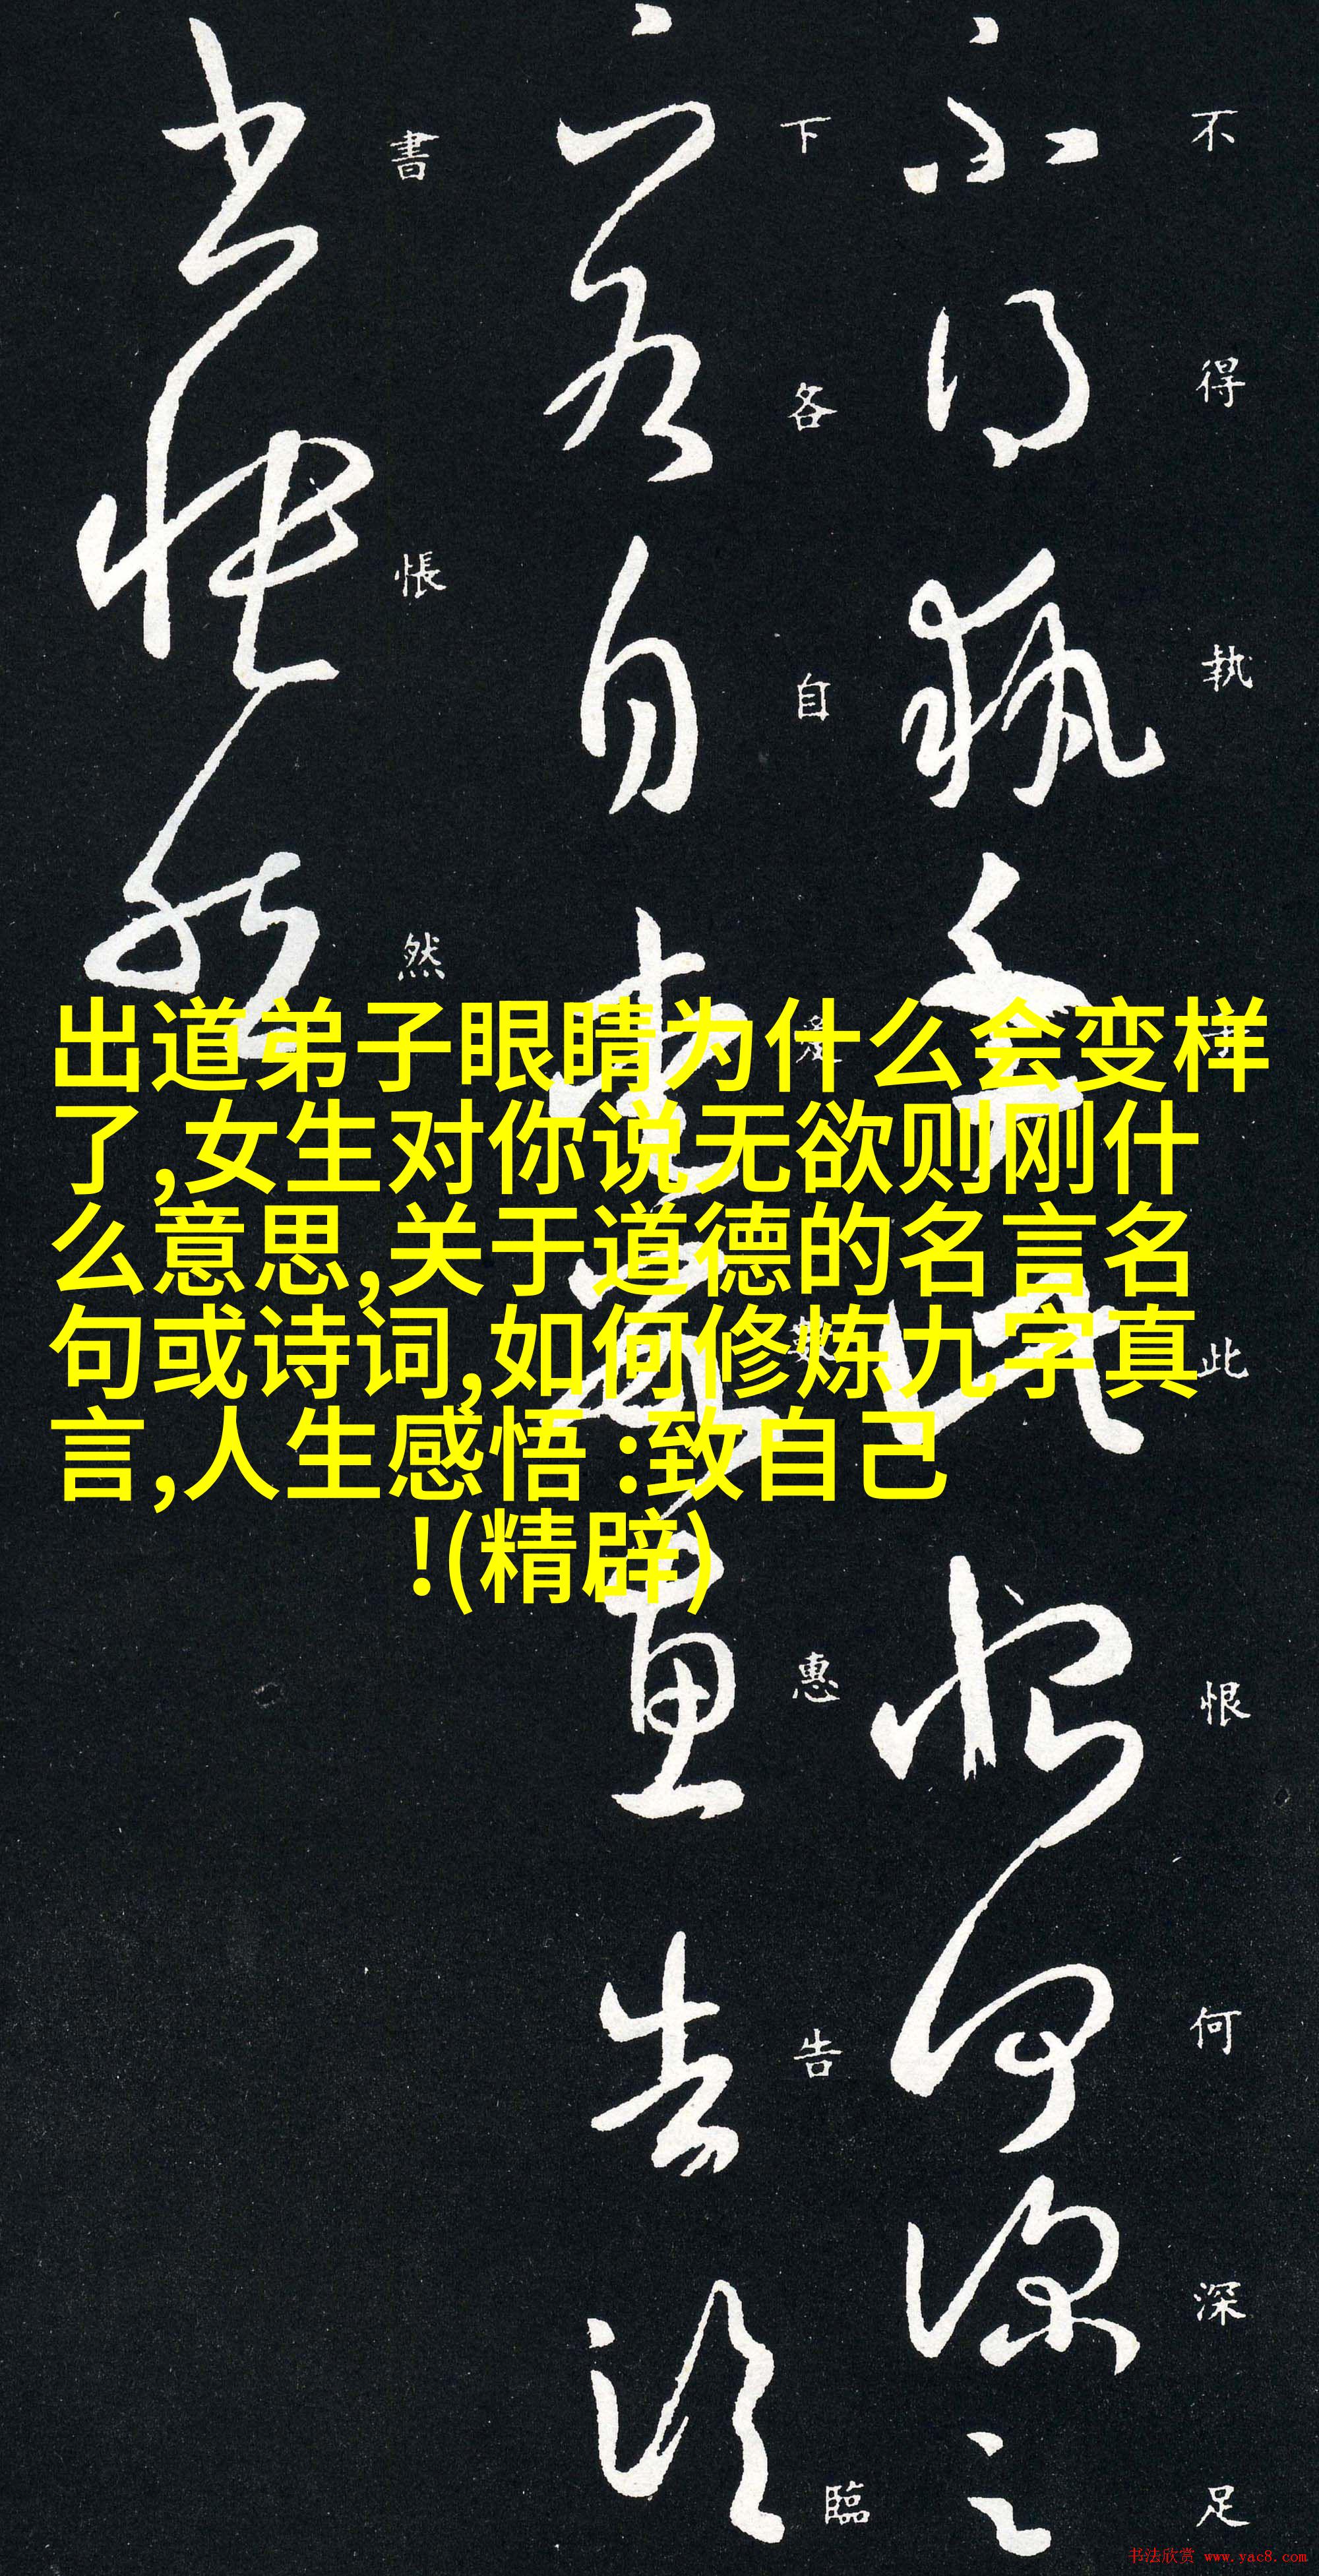 不得執手此恨何深足
下各自愛數惠告臨
書悵然
出道弟子眼睛为什么会变样
了,女生对你说无欲则刚什
么意思,关于道德的名言名
句或诗词,如何修炼九字真
言,人生感悟 :致自己
!(精辟)
书法欣赏 www.yac8.com